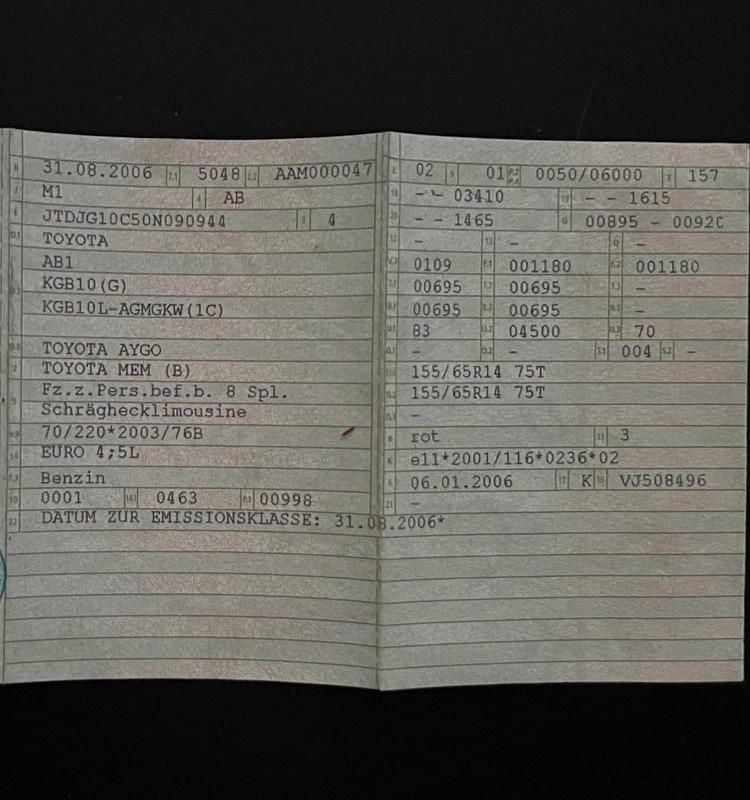 31.08.2006 2.1 5048 2.2 AAM000047
M1 4 AB
JTDJG10C50N090944 3 4
TOYOTA
AB1
KGB10(G)
KGB10L-AGMGKW(1C)
TOYOTA AYGO
TOYOTA MEM (B)
Fz.z.Pers.bef.b. 8 Spl.
Schräghecklimousine
70/220*2003/76B
EURO 4;5L
Benzin
0001 14.1 0463 P.1 00998
22 DATUM ZUR EMISSIONSKLASSE: 31.08.2006*
L 02 9 01 P.2 P.4 0050/06000 T 157
18 - - 03410 19 - - 1615
20 - - 1465 G 00895 - 0092
12 - 13 - Q -
V.7 0109 F.1 001180 F.2 001180
7.1 00695 7.2 00695 7.3 -
8.1 00695 8.2 00695 8.3 -
U.1 83 U.2 04500 U.3 70
O.1 - O.2 - S.1 004 S.2 -
15.1 155/65R14 75T
15.2 155/65R14 75T
15.3 -
R rot 11 3
K e11*2001/116*0236*02
6 06.01.2006 17 K 16 VJ508496
21 -